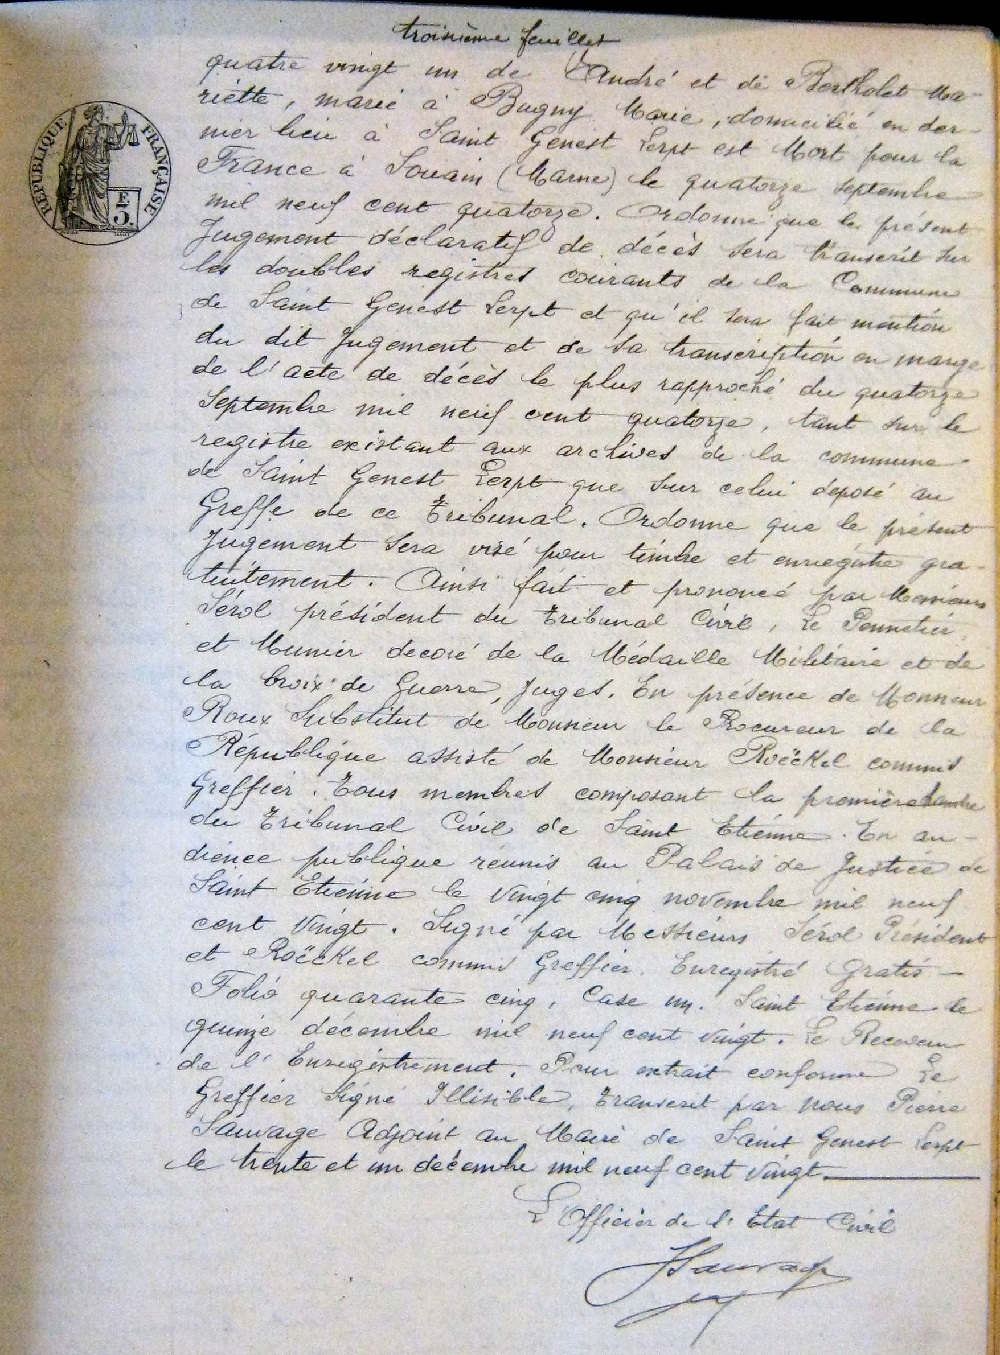 troisième feuillet
RÉPUBLIQUE FRANÇAISE
E
5
quatre vingt un de André et de Bertholet Ma-
riette, marié à Bugny Marie, domicilié en der-
nier lieu à Saint Genest Lerpt est Mort pour la
France à Souain (Marne) le quatorze septembre
mil neuf cent quatorze. Ordonne que le présent
Jugement déclaratif de décès sera transcrit sur
les doubles registres courants de la Commune
de Saint Genest Lerpt et qu'il sera fait mention
du dit Jugement et de sa transcription en marge
de l'acte de décès le plus rapproché du quatorze
Septembre mil neuf cent quatorze, tant sur le
registre existant aux archives de la commune
de Saint Genest Lerpt que sur celui déposé au
Greffe de ce Tribunal. Ordonne que le présent
Jugement sera visé pour timbre et enregistré gra-
tuitement. Ainsi fait et prononcé par Messieurs
Sérol président du Tribunal Civil, Le Pennetier
et Munier décoré de la Médaille Militaire et de
la Croix de Guerre, Juges. En présence de Monsieur
Roux Substitut de Monsieur le Procureur de la
République assisté de Monsieur Roëckel commis
Greffier. Tous membres composant la première Chambre
du Tribunal Civil de Saint Etienne. En au-
dience publique réunis au Palais de Justice de
Saint Etienne le vingt cinq novembre mil neuf
cent vingt. Signé par Messieurs Sérol Président
et Roëckel commis Greffier. Enregistré Gratis -
Folio quarante cinq, Case un. Saint Etienne le
quinze décembre mil neuf cent vingt. Le Receveur
de l'Enregistrement. Pour extrait conforme Le
Greffier Signé Illisible, Transcrit par nous Pierre
Sauvage Adjoint au Maire de Saint Genest Lerpt
le trente et un décembre mil neuf cent vingt.
L'Officier de l'Etat Civil
Sauvage